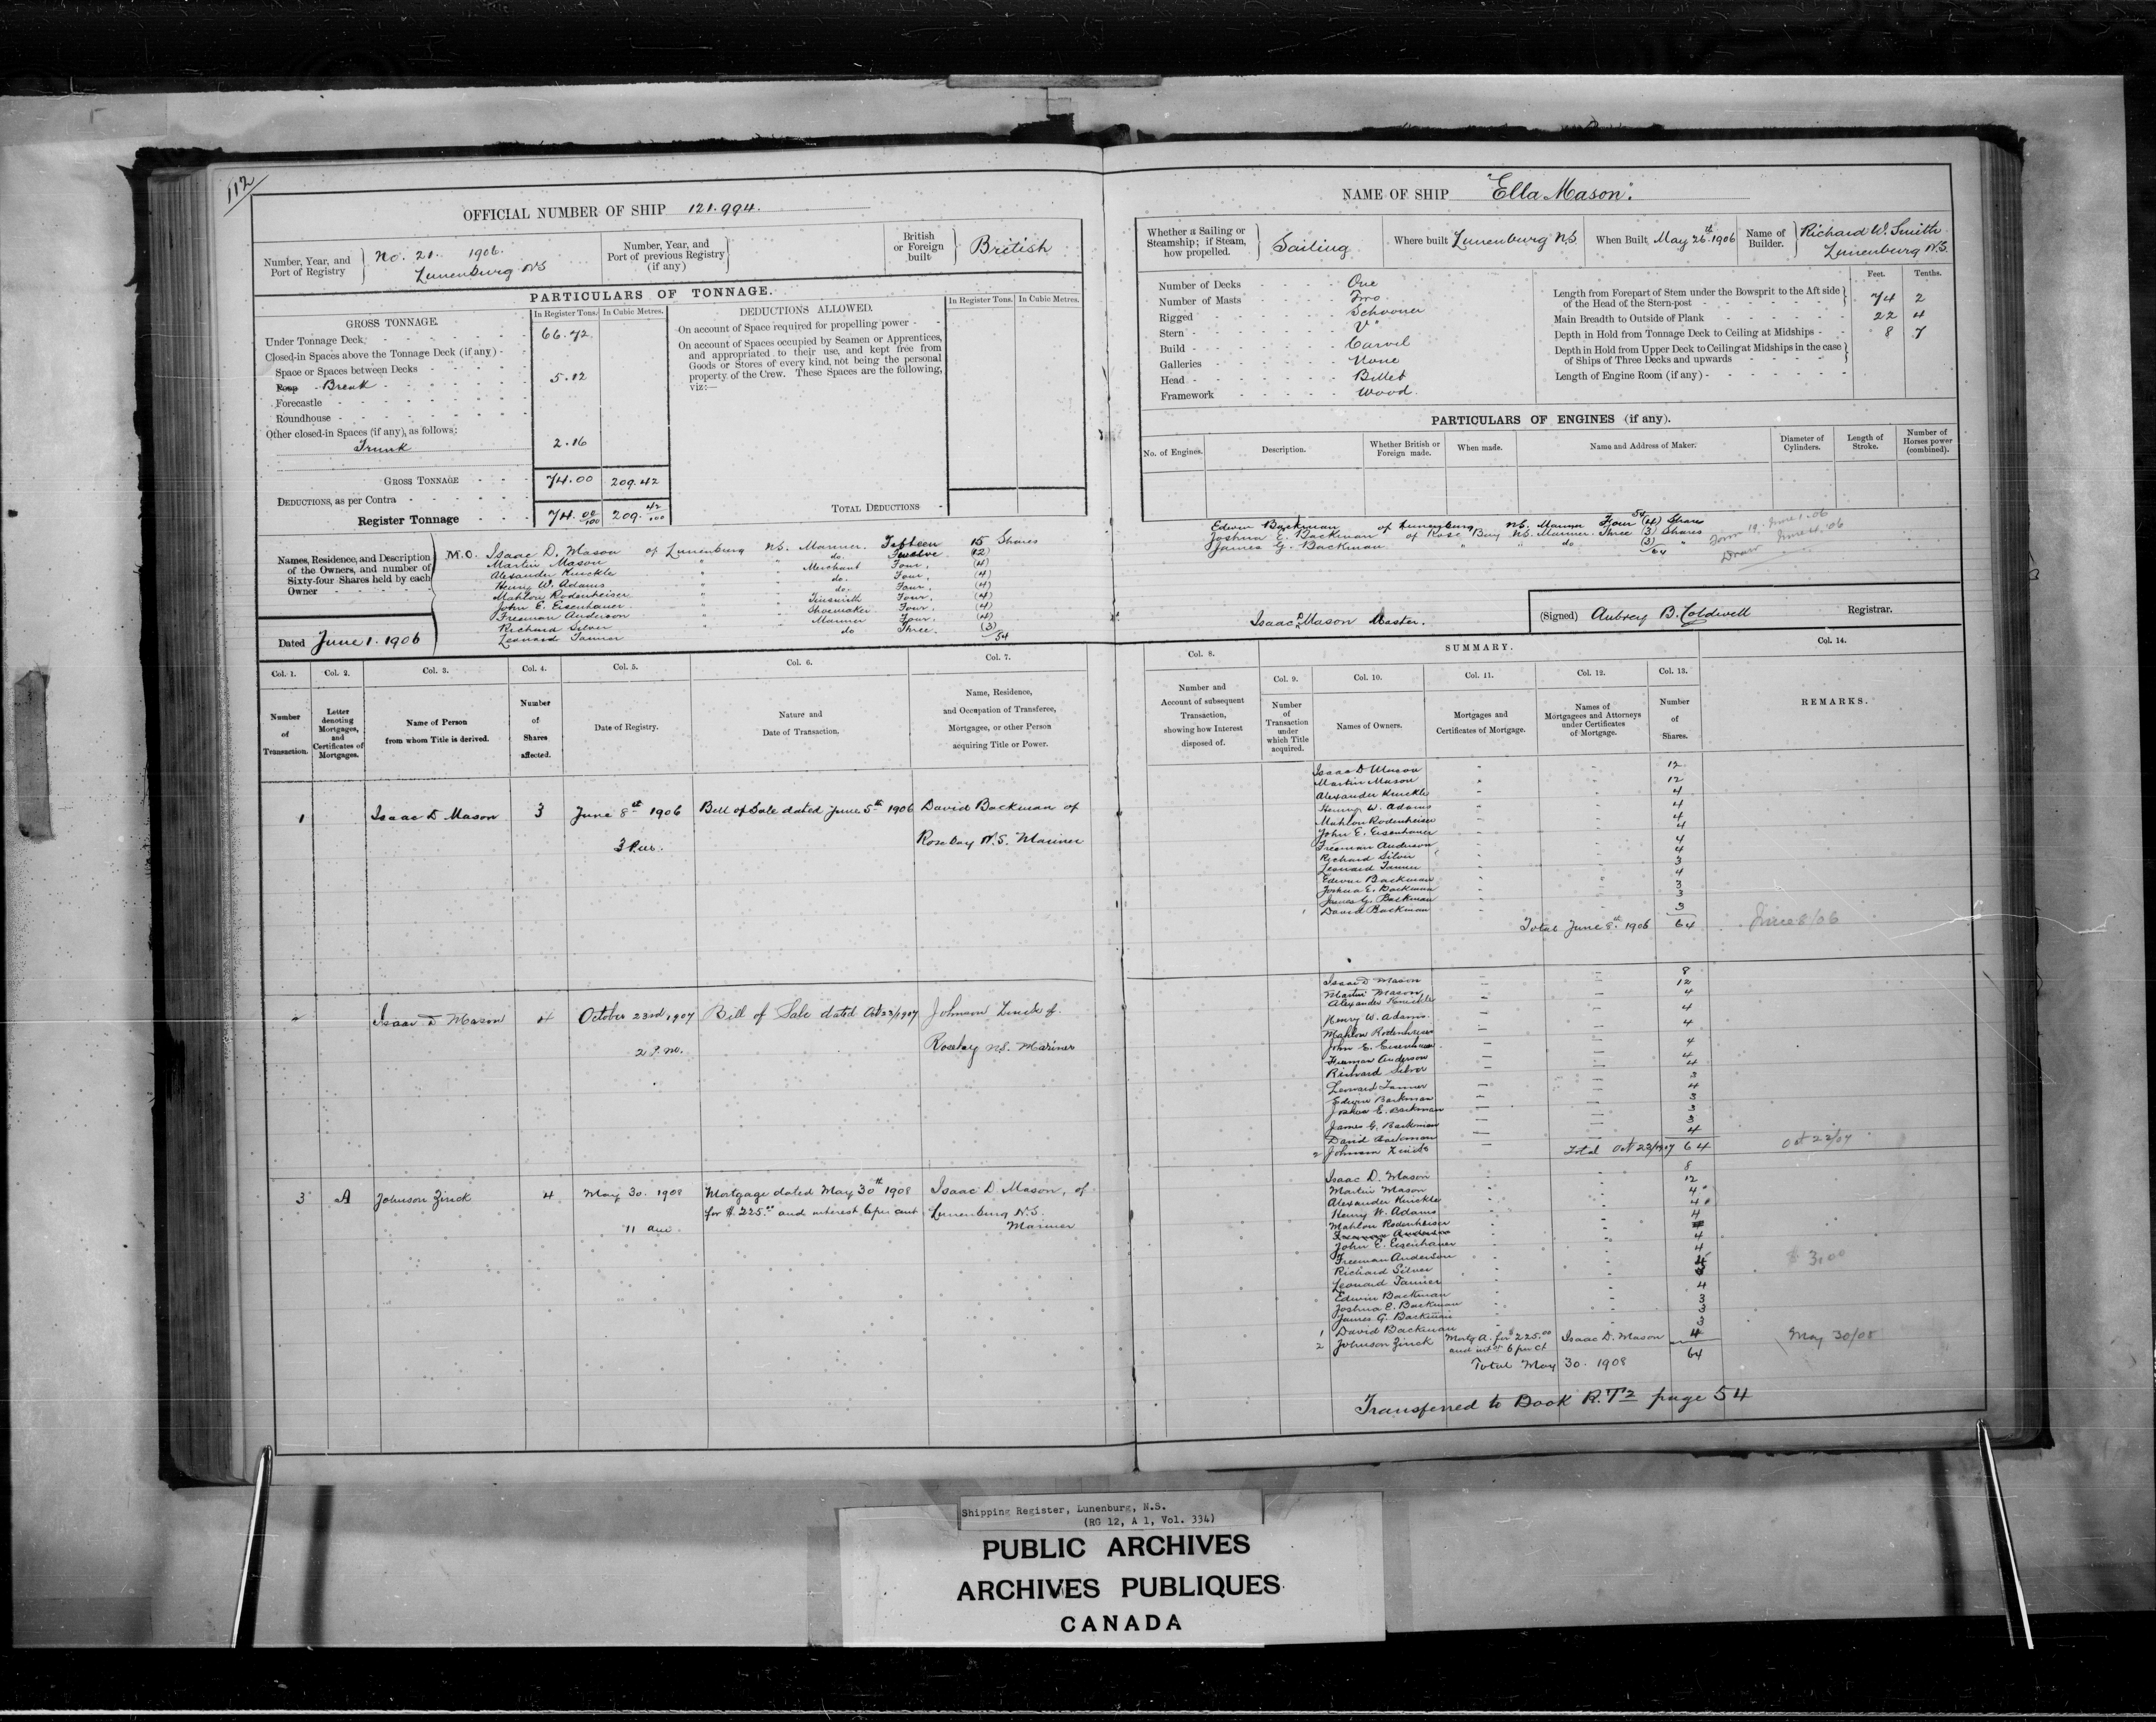 112
OFFICIAL NUMBER OF SHIP 121.994.
Number, Year, and Port of Registry
No. 21. 1906.
Lunenburg NS
Number, Year, and Port of previous Registry (if any)
British or Foreign built
British
PARTICULARS OF TONNAGE.
GROSS TONNAGE.
In Register Tons. In Cubic Metres.
Under Tonnage Deck, 66.72
Closed-in Spaces above the Tonnage Deck (if any) -
Space or Spaces between Decks
Poop Break 5.12
Forecastle
Roundhouse
Other closed-in Spaces (if any), as follows:
Trunk 2.16
GROSS TONNAGE 74.00 209.42
DEDUCTIONS, as per Contra
Register Tonnage 74. 00/100 209. 42/100
DEDUCTIONS ALLOWED.
In Register Tons. In Cubic Metres.
On account of Space required for propelling power
On account of Spaces occupied by Seamen or Apprentices,
and appropriated to their use, and kept free from
Goods or Stores of every kind, not being the personal
property of the Crew. These Spaces are the following,
viz:—
TOTAL DEDUCTIONS
Names, Residence, and Description
of the Owners, and number of
Sixty-four Shares held by each
Owner
M.O. Isaac D. Mason of Lunenburg NS. Mariner. Fifteen 15 Shares
Martin Mason " " do. Twelve (12)
Alexander Knickle " " Merchant Four. (4)
Henry W. Adams " " do. Four. (4)
Mahlon Rodenheiser " " do. Four. (4)
John E. Eisenhauer " " Tinsmith Four. (4)
Freeman Anderson " " Shoemaker Four. (4)
Richard Silver " " Mariner Four. (4)
Leonard Tanner " " do Three. (3)
54
Dated June 1. 1906
NAME OF SHIP "Ella Mason".
Whether a Sailing or Steamship; if Steam, how propelled.
Sailing
Where built Lunenburg N.S.
When Built, May 26th 1906
Name of Builder.
Richard W. Smith
Lunenburg N.S.
Number of Decks One
Number of Masts Two
Rigged Schooner
Stern "V"
Build Carvel
Galleries None
Head Billet
Framework Wood.
Feet. Tenths.
Length from Forepart of Stem under the Bowsprit to the Aft side
of the Head of the Stern-post 74 2
Main Breadth to Outside of Plank 22 4
Depth in Hold from Tonnage Deck to Ceiling at Midships 8 7
Depth in Hold from Upper Deck to Ceiling at Midships in the case
of Ships of Three Decks and upwards
Length of Engine Room (if any)
PARTICULARS OF ENGINES (if any).
No. of Engines. Description. Whether British or Foreign made. When made. Name and Address of Maker. Diameter of Cylinders. Length of Stroke. Number of Horses power (combined).
54
Edwin Backman of Lunenburg NS. Mariner Four (4) Shares
Joshua E. Backman of Rose Bay NS. Mariner. Three (3) Shares
James G. Backman " " do (3) "
64
Form 19. June 1. 06
Isaac D Mason Master.
(Signed) Aubrey B. Coldwell Registrar.
Col. 1. Col. 2. Col. 3. Col. 4. Col. 5. Col. 6. Col. 7.
Number of Transaction.
Letter denoting Mortgages, and Certificates of Mortgages.
Name of Person from whom Title is derived.
Number of Shares affected.
Date of Registry.
Nature and Date of Transaction.
Name, Residence, and Occupation of Transferee, Mortgagee, or other Person acquiring Title or Power.
Col. 8. SUMMARY. Col. 14.
Col. 9. Col. 10. Col. 11. Col. 12. Col. 13.
Number and Account of subsequent Transaction, showing how Interest disposed of.
Number of Transaction under which Title acquired.
Names of Owners.
Mortgages and Certificates of Mortgage.
Names of Mortgagees and Attorneys under Certificates of Mortgage.
Number of Shares.
REMARKS.
1 Isaac D Mason 3 June 8th 1906 Bill of Sale dated June 5th 1906 David Backman of
3 P.M. Rose Bay N.S. Mariner
Isaac D Mason 12
Martin Mason 12
Alexander Knickle 4
Henry W. Adams 4
Mahlon Rodenheiser 4
John E. Eisenhauer 4
Freeman Anderson 4
Richard Silver 4
Leonard Tanner 3
Edwin Backman 4
Joshua E. Backman 3
James G. Backman 3
1 David Backman 3
Total June 8th 1906 64
June 8/06
2 Isaac D Mason 4 October 23rd 1907 Bill of Sale dated Oct 22/1907 Johnson Zinck of
2 P.M. Rosebay N.S. Mariner
Isaac D Mason 8
Martin Mason 12
Alexander Knickle 4
Henry W. Adams 4
Mahlon Rodenheiser 4
John E. Eisenhauer 4
Freeman Anderson 4
Richard Silver 4
Leonard Tanner 3
Edwin Backman 4
Joshua E. Backman 3
James G. Backman 3
David Backman 3
2 Johnson Zinck 4
Total Oct 23/1907 64
Oct 22/07
3 A Johnson Zinck 4 May 30. 1908 Mortgage dated May 30th 1908 Isaac D Mason, of
for $225.00 and interest 6 per cent Lunenburg N.S.
11 am. Mariner
Isaac D. Mason 8
Martin Mason 12
Alexander Knickle 4
Henry W. Adams 4
Mahlon Rodenheiser 4
Freeman Anderson
John E. Eisenhauer 4
Freeman Anderson 4
Richard Silver 4
Leonard Tanner 3
Edwin Backman 4
Joshua E. Backman 3
James G. Backman 3
1 David Backman 3
2 Johnson Zinck Mortg A. for $225.00 Isaac D. Mason 4
and int at 6 per ct
Total May 30. 1908 64
$3.00
May 30/08
Transferred to Book R.T2 page 54
Shipping Register, Lunenburg, N.S.
(RG 12, A 1, Vol. 334)
PUBLIC ARCHIVES
ARCHIVES PUBLIQUES
CANADA